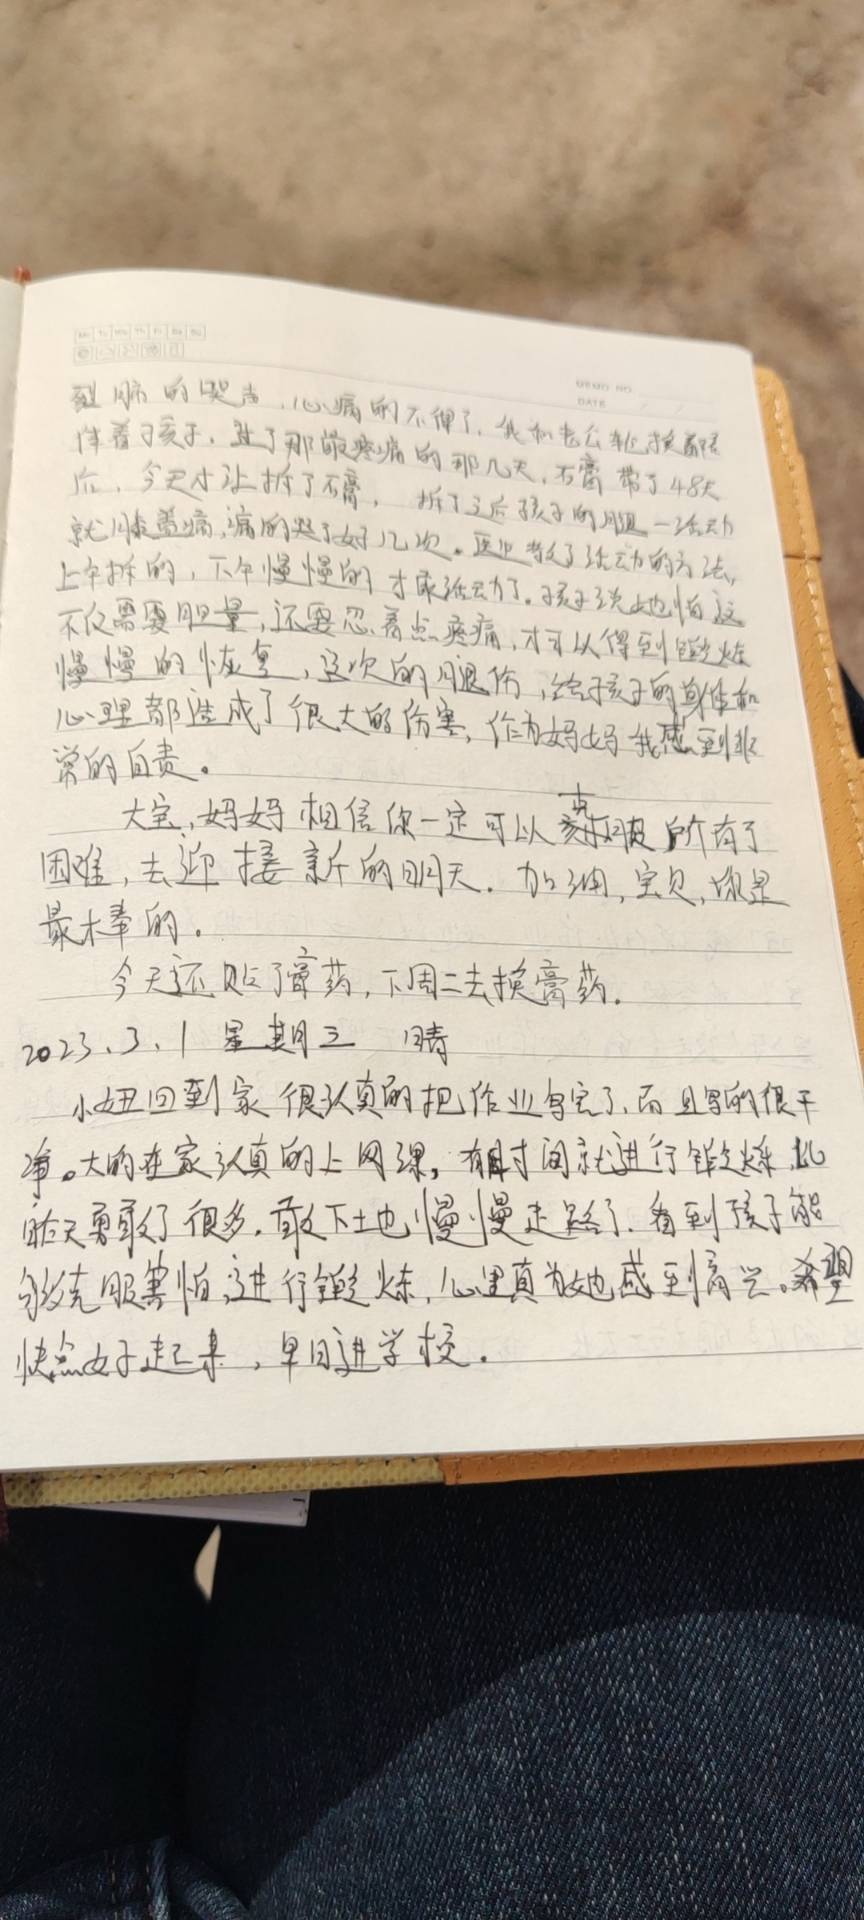 Mo Tu We Th Fr Sa Su
MEMO NO.
DATE / /
裂肺的哭声,心痛的不得了,我和老公轮换着陪
伴着孩子,过了那最疼痛的那几天,石膏带了48天
后,今天才让拆了石膏,拆了之后孩子的腿一活动
就膝盖痛,痛的哭了好几次。医生教了活动的方法,
上午拆的,下午慢慢的才敢活动了。孩子说她怕
不仅需要胆量,还要忍着点疼痛,才可以得到锻炼
慢慢的恢复,这次的腿伤,给孩子的身体和
心理都造成了很大的伤害,作为妈妈我感到非
常的自责。
大宝,妈妈相信你一定可以克服所有了
困难,去迎接新的明天。加油,宝贝,你是
最棒的。
今天还贴了膏药,下周二去换膏药。
2023.3.1 星期三 晴
小妞回到家很认真的把作业写完了,而且写的很干
净。大的在家认真的上网课,有时间就进行锻炼,比
昨天勇敢了很多,敢下土也慢慢走路了,看到孩子能
够克服害怕,进行锻炼,心里真为她感到高兴。希望
快点好起来,早日进学校。